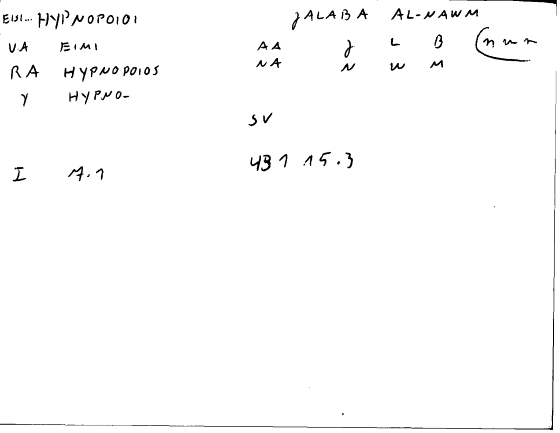 EISI... HYPNOPOIOI JALABA AL-NAWM
VA EIMI AA J L B (n w m
RA HYPNOPOIOS NA N W M
Y HYPNO-
SV
I 7.1 431 15.3